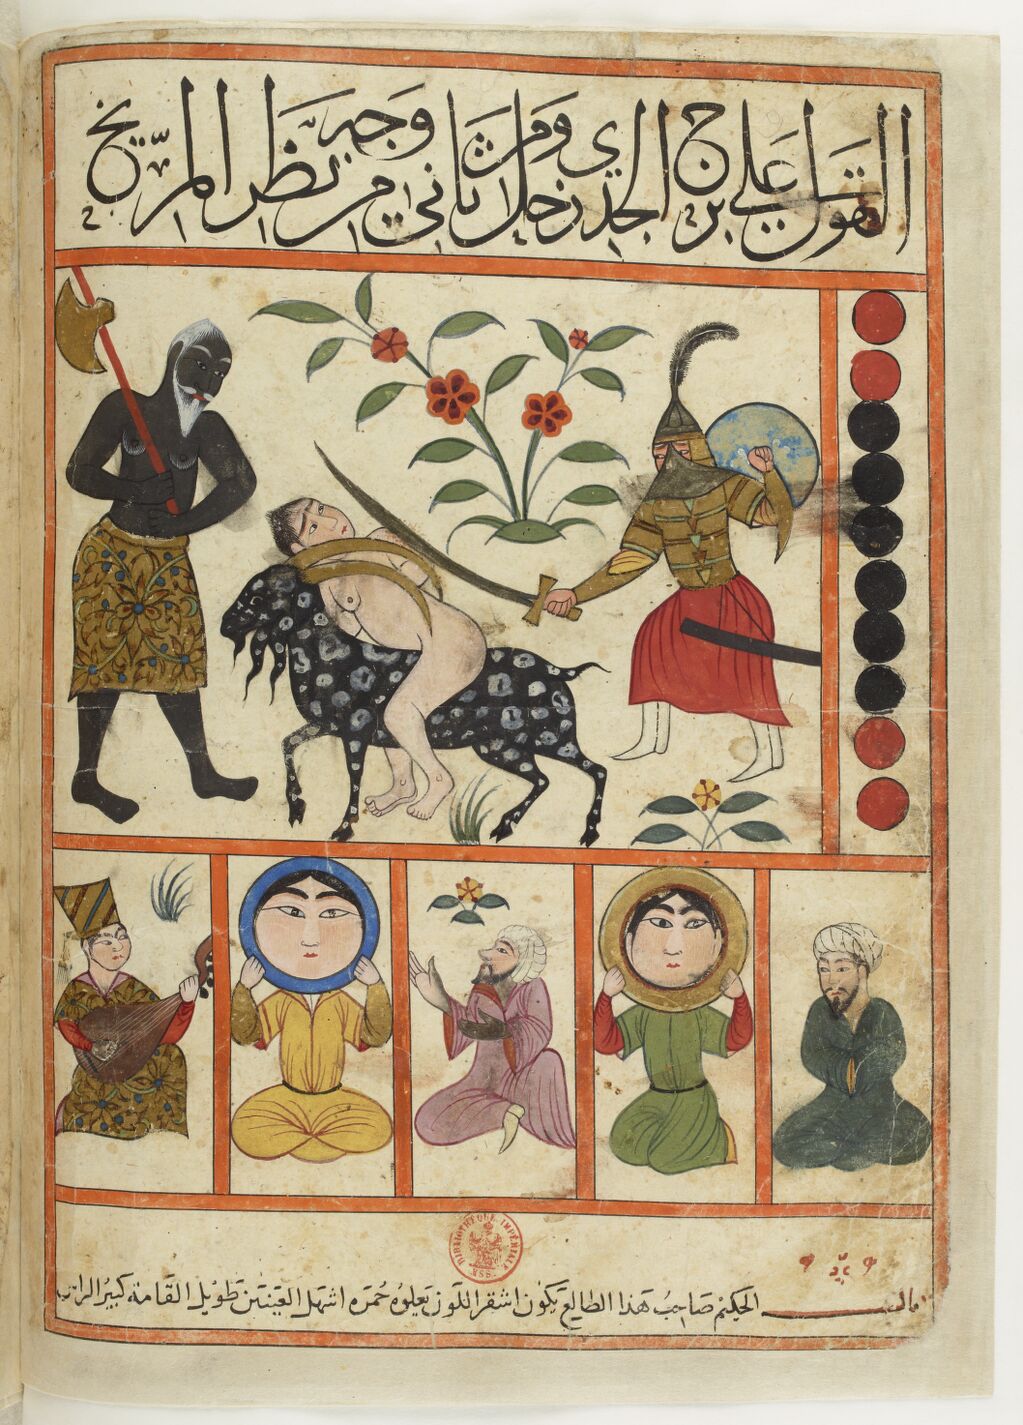 القول على برج الجدي ومن ثاني وجه
زحل ينظر المريخ
BIBLIOTHÈQUE IMPÉRIALE MSS.
قال الحكيم صاحب هذا الطالع يكون اشقر اللون يعلوه حمره اشهل العينين طويل القامة كبير الراس